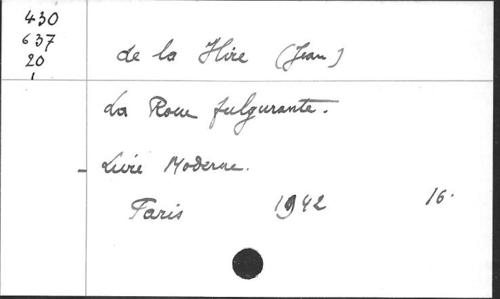 430
637
20
1
de la Hire (Jean)
La Roue fulgurante.
- Livre Moderne.
Paris 1942 16.